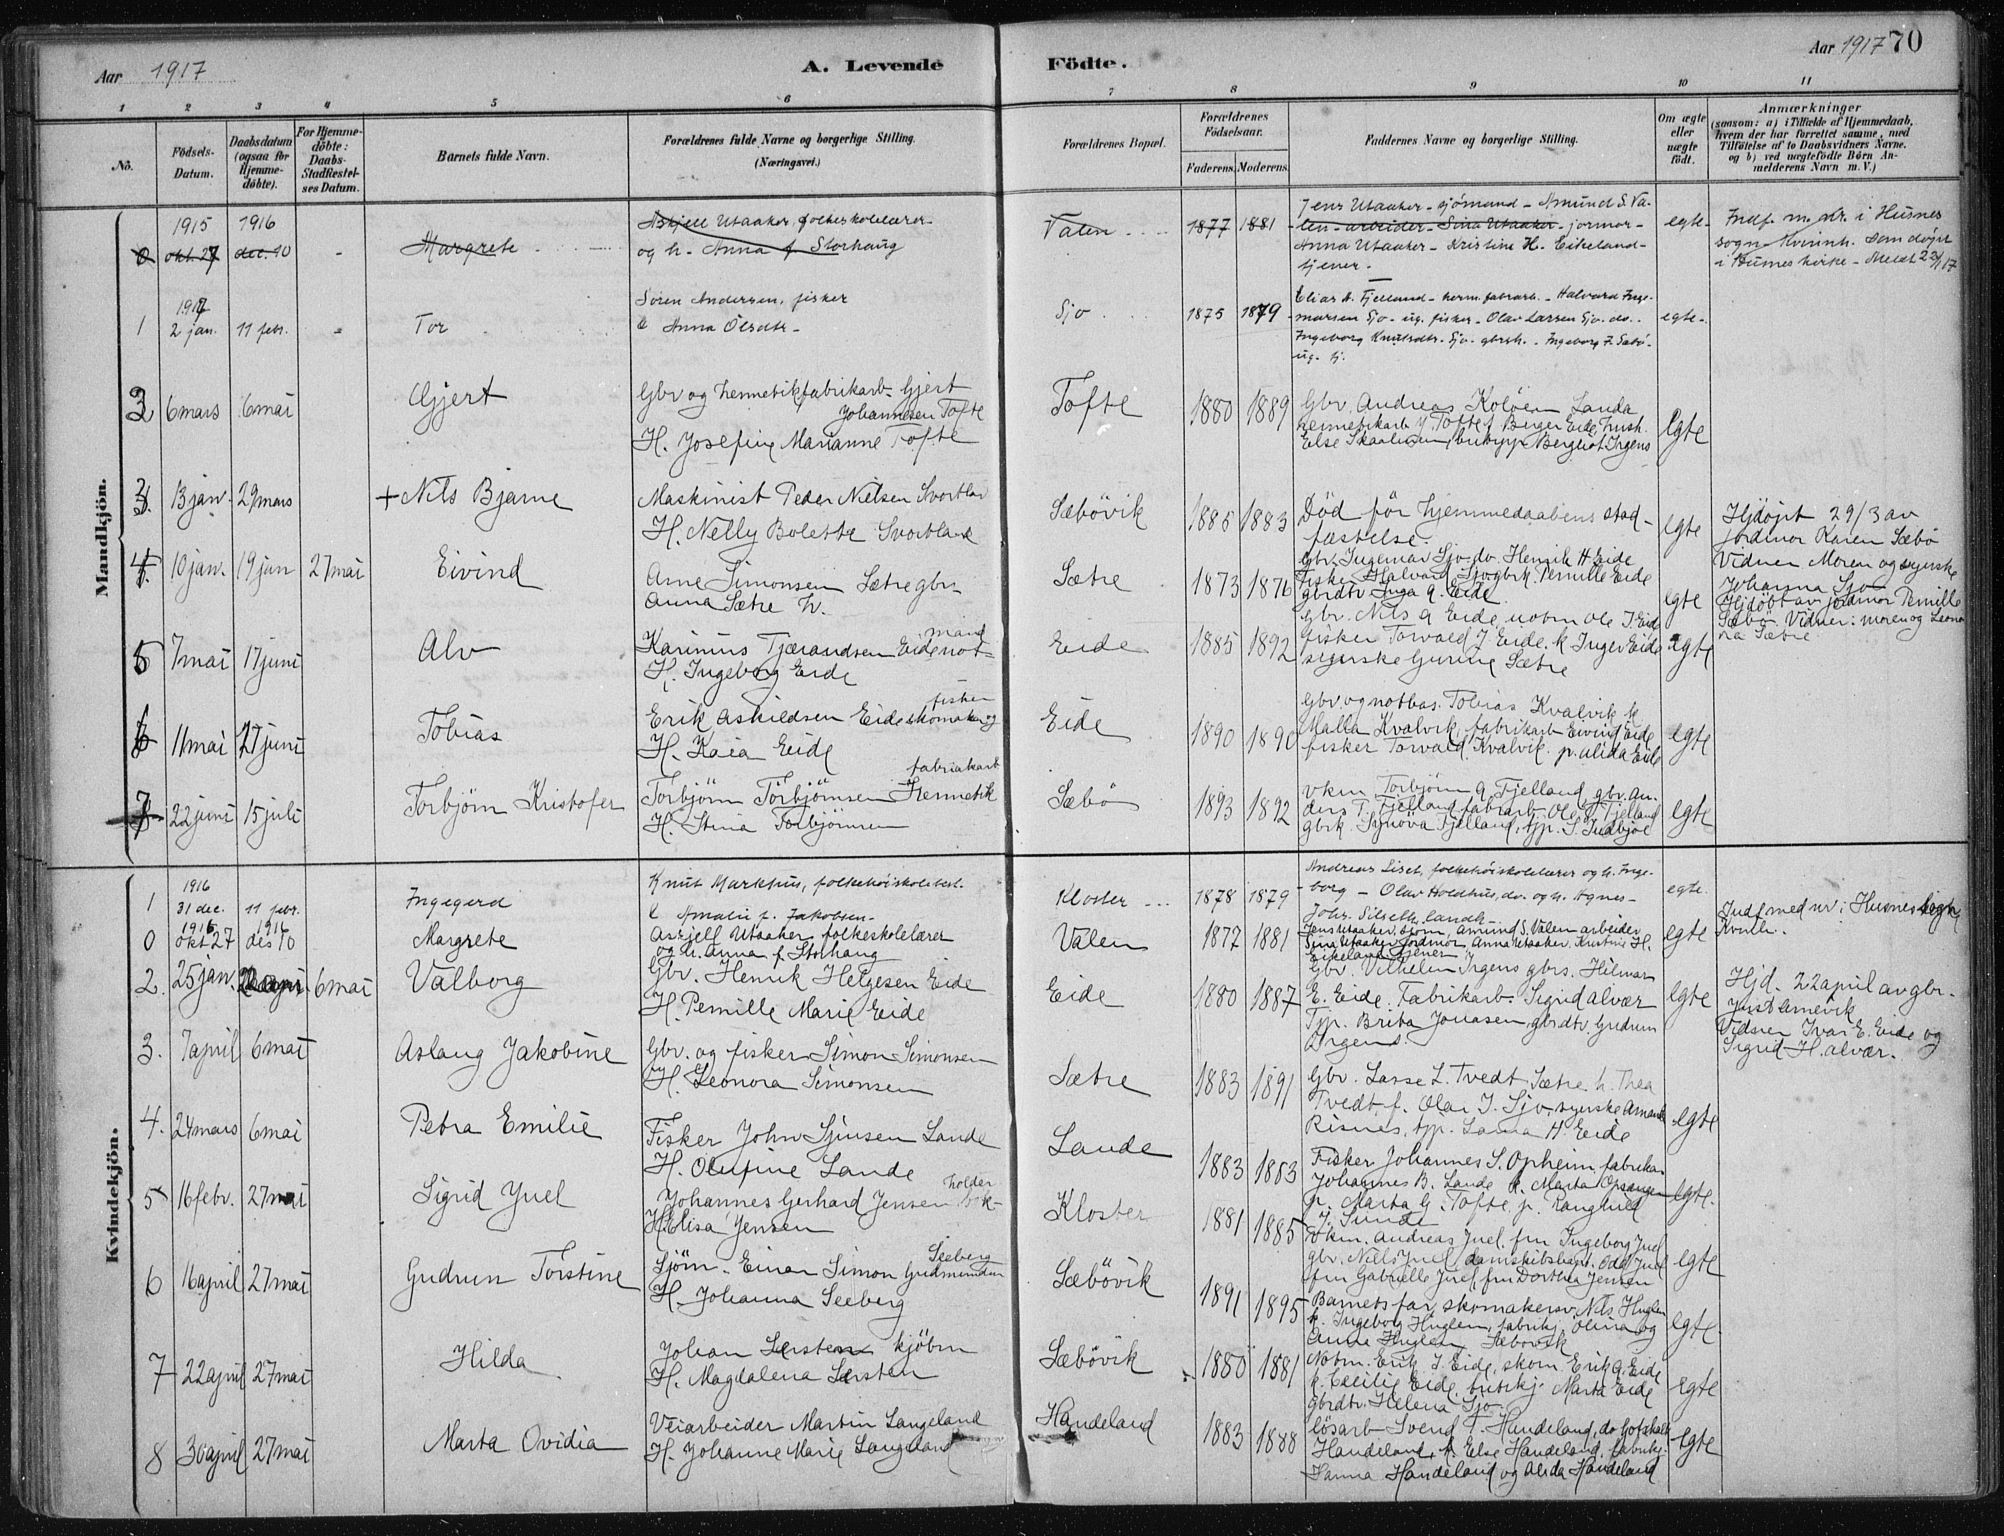 Aar 1917
A. Levende
Födte.
Aar 1917 70
1 2 3 4 5 6 7 8 9 10 11
No.
Födsels-Datum.
Daabsdatum (ogsaa för Hjemme-döbte).
For Hjemme-döbte: Daabs-Stadfæstel-ses Datum.
Barnets fulde Navn.
Forældrenes fulde Navne og borgerlige Stilling.
(Næringsvei.)
Forældrenes Bopæl.
Forældrenes Födselsaar.
Faderens. Moderens.
Faddernes Navne og borgerlige Stilling.
Om ægte eller uægte födt.
Anmærkninger
(saasom: a) i Tilfælde af Hjemmedaab, hvem der har forrettet samme, med Tilföielse af to Daabsvidners Navne. og b) ved uægtefödte Börn An-melderens Navn m. V.)
Mandkjön.
1915 1916
0 okt. 27 dec. 10 - Margrete
Askjell Utaaker, folkeskolelærer
og h. Anna f. Storhaug
Valen 1877 1881
Jens Utaaker - sjömand - Amund S. Va-
len - arbeider - Sina Utaaker - jormor -
Anna Utaaker - Kristine H. Eikeland -
tjener -
egte
Indf. m. nr. i Husnes
sogn Kvinnh. som døpt
i Husnes kirke - Meldt 23/1 17
1917
1 2 jan. 11 febr. - Tor
Sören Andersen, fisker
& Anna Olsdtr -
Sjo 1875 1879
Elias A. Fjelland - herm. fabrarb. - Halvard Inge-
marsen Sjo - ug. fisker - Olav Larsen Sjo - do. -
Ingeborg Knutsdtr. Sjo - gbrsh. - Ingeborg F. Sæbö -
ug. tj.
egte
2 6 mars 6 mai Gjert
Gbr og hermetikfabrikarb. Gjert
Johannesen Tofte
H. Josefine Marianne Tofte
Tofte 1880 1889
Gbr. Andreas Kolöen Landa
Else Skaaluren, butiqp Bergliot Irgens
egte
3 13 jan. 29 mars + Nils Bjarne
Maskinist Peder Nielsen Svortlan
H. Nelly Bolette Svortland
Sæbövik 1885 1883
Död för hjemmedaabens stad-
fæstelse.
egte
Hjdöpt 29/3 av
jordmor Karen Sæbö
Vidner Moren og syerske
Johanna Sjo
4 10 jan. 19 jan 27 mai Eivind
Arne Simonsen Sætre gbr.
Anna Sætre h.
Sætre 1873 1876
Gbr. Ingemar Sjo do. Henrik H. Eide
fisker Halvard Sjo gbrk. Pernille Eide
gbrdtr Inga A. Eide
egte
Hjdöbt av jordmor Pernille
Sæbö. Vidner: moren og Leono
ra Sætre
5 7 mai 17 juni Alv
Karinius Tjærandsen Eide not-
mand
H. Ingeborg Eide
Eide 1885 1892
gbr. Nils A Eide, notbm Ole T. Eid
fisker Torvald J. Eide, k Inger Eide
syerske Gurine Sætre
egte
6 11 mai 27 juni Tobias
Erik Askildsen Eide skomaker og
fisker
H. Kaia Eide
Eide 1890 1890
Gbr. og notbas. Tobias Kvalvik k
Malla Kvalvik, fabrikarb Eivind Eide
fisker Torvald Kvalvik. p. Alida Eide
egte
7 22 juni 15 juli Torbjörn Kristofer
Torbjörn Torbjörnsen Hermetik
fabrikarb
H. Stina Torbjörnsen
Sæbö 1893 1892
Vkm. Torbjörn A. Fjelland, gbr. An-
ders T. Fjelland, fabrarb. Ole T. Fjelland
gbrk. Synöva Fjelland, tjp. S. Indbjoe
egte
Kvindekjön.
1916
1 31 dec. 11 febr. Ingegerd
Knut Markhus, folkehöiskolebest.
& Amalie f. Jakobsen -
Kloster 1878 1879
Andreas Liset, folkehöiskolelærer og h. Inge-
borg - Olav Holdhus, do. og h. Agnes -
egte
1915 1916
0 okt 27 des 10 Margrete
Askjell Utaaker folkeskolelærer
og h. Anna f. Storhaug
Valen 1877 1881
Jens Utaaker, sjöm, Amund S. Valen arbeider
Sina Utaaker jordmor, Anna Utaaker, Kristine H.
Eikeland tjener
egte
Indf med nr i Husnes sogn
Kvinh.
2. 25 jan. 22 apr 6 mai Valborg
Gbr. Henrik Helgesen Eide
H. Pernille Marie Eide
Eide 1880 1887
Gbr. Vilhelm Irgens gbrs. Hilmar
E. Eide. Fabrikarb. Sigrid Alvær
Tjp. Brita Jonasen, gbrdtr. Gudrun
Irgens
egte
Hjd. 22 april av gbr.
Just Arnevik
Vidner Ivar E. Eide og
Sigrid H. Alvær.
3. 7 april 6 mai Aslaug Jakobine
Gbr. og fisker Simon Simonsen
H. Leonora Simonsen
Sætre 1883 1891
Gbr. Lasse L. Tvedt Sætre h. Thea
Tvedt, f. Olai I. Sjo, syerske Amanda
Risnes, tjp. Lanna H. Eide
egte
4. 24 mars 6 mai Petra Emilie
Fisker John Sjursen Lande
H. Olufine Lande
Lande 1883 1883
Fisker Johannes S. Opheim, fabrika.
Johannes B. Lande k. Marta Opsangen
p. Marta G. Tofte, p. Ranghild
J. Sunde
egte.
5 16 febr. 27 mai Sigrid Juel
Johannes Gerhard Jensen bok-
holder
H. Elisa Jensen
Kloster 1881 1885
Vkm. Andreas Juel, fru Ingeborg Juel
gbr. Niels Juel, damskibsexp. Odd Juel
fru Gabrielle Juel, fru Dorthea Jensen
egte
6 16 april 27 mai Gudrun Torstine
Sjöm. Einar Simon Gudmundsen
Seeberg
H. Johanna Seeberg
Sæbövik 1891 1895
Barnets far, skomakersv. Nils Huglen
k. Ingeborg Huglen, fabrikj. Olina og
Anna Huglen Sæbövik
egte
7 22 april 27 mai Hilda
Johan Lersten kjöbm
H. Magdalena Lersten
Sæbövik 1880 1881
Notbm. Erik I. Eide, skom Erik A. Eide
k. Cecilie Eide, butikj. Marta Eide
gbrdtr. Helena Sjo.
egte
8 30 april 27 mai Marta Ovidia
Veiarbeider Martin Langeland
H. Johanne Marie Langeland
Handeland 1883 1888
lösarb Svend T. Handeland, do Gotskalk
Handeland, k. Else Handeland, fabrikj.
Hanna Handeland og Alida Handeland
egte